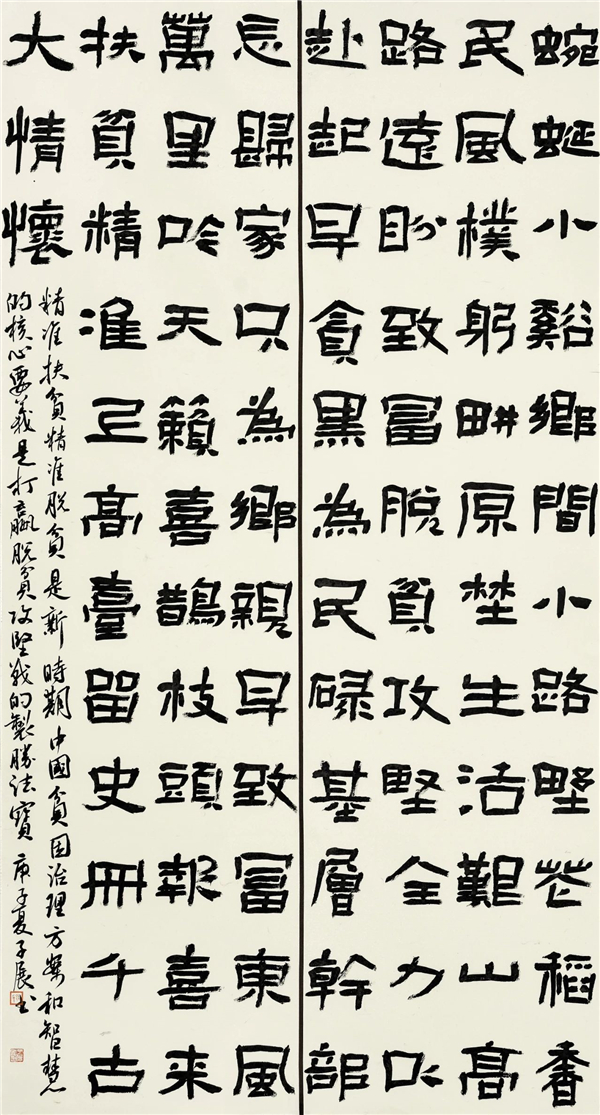 蜿蜒小谿鄉間小路野花稻香
民風樸躬畊原埜生活艱山高
路遠盼致富脫貧攻堅全力以
赴起早貪黑為民碌基層幹部
忘歸家只為鄉親早致富東風
萬里吟天籟喜鵲枝頭報喜来
扶貧精准上高臺留史冊千古
大情懷
精准扶貧精准脫貧是新時期中國貧困治理方案和智慧
的核心要義是打贏脫貧攻堅戰的製勝法寶 庚子夏子展书